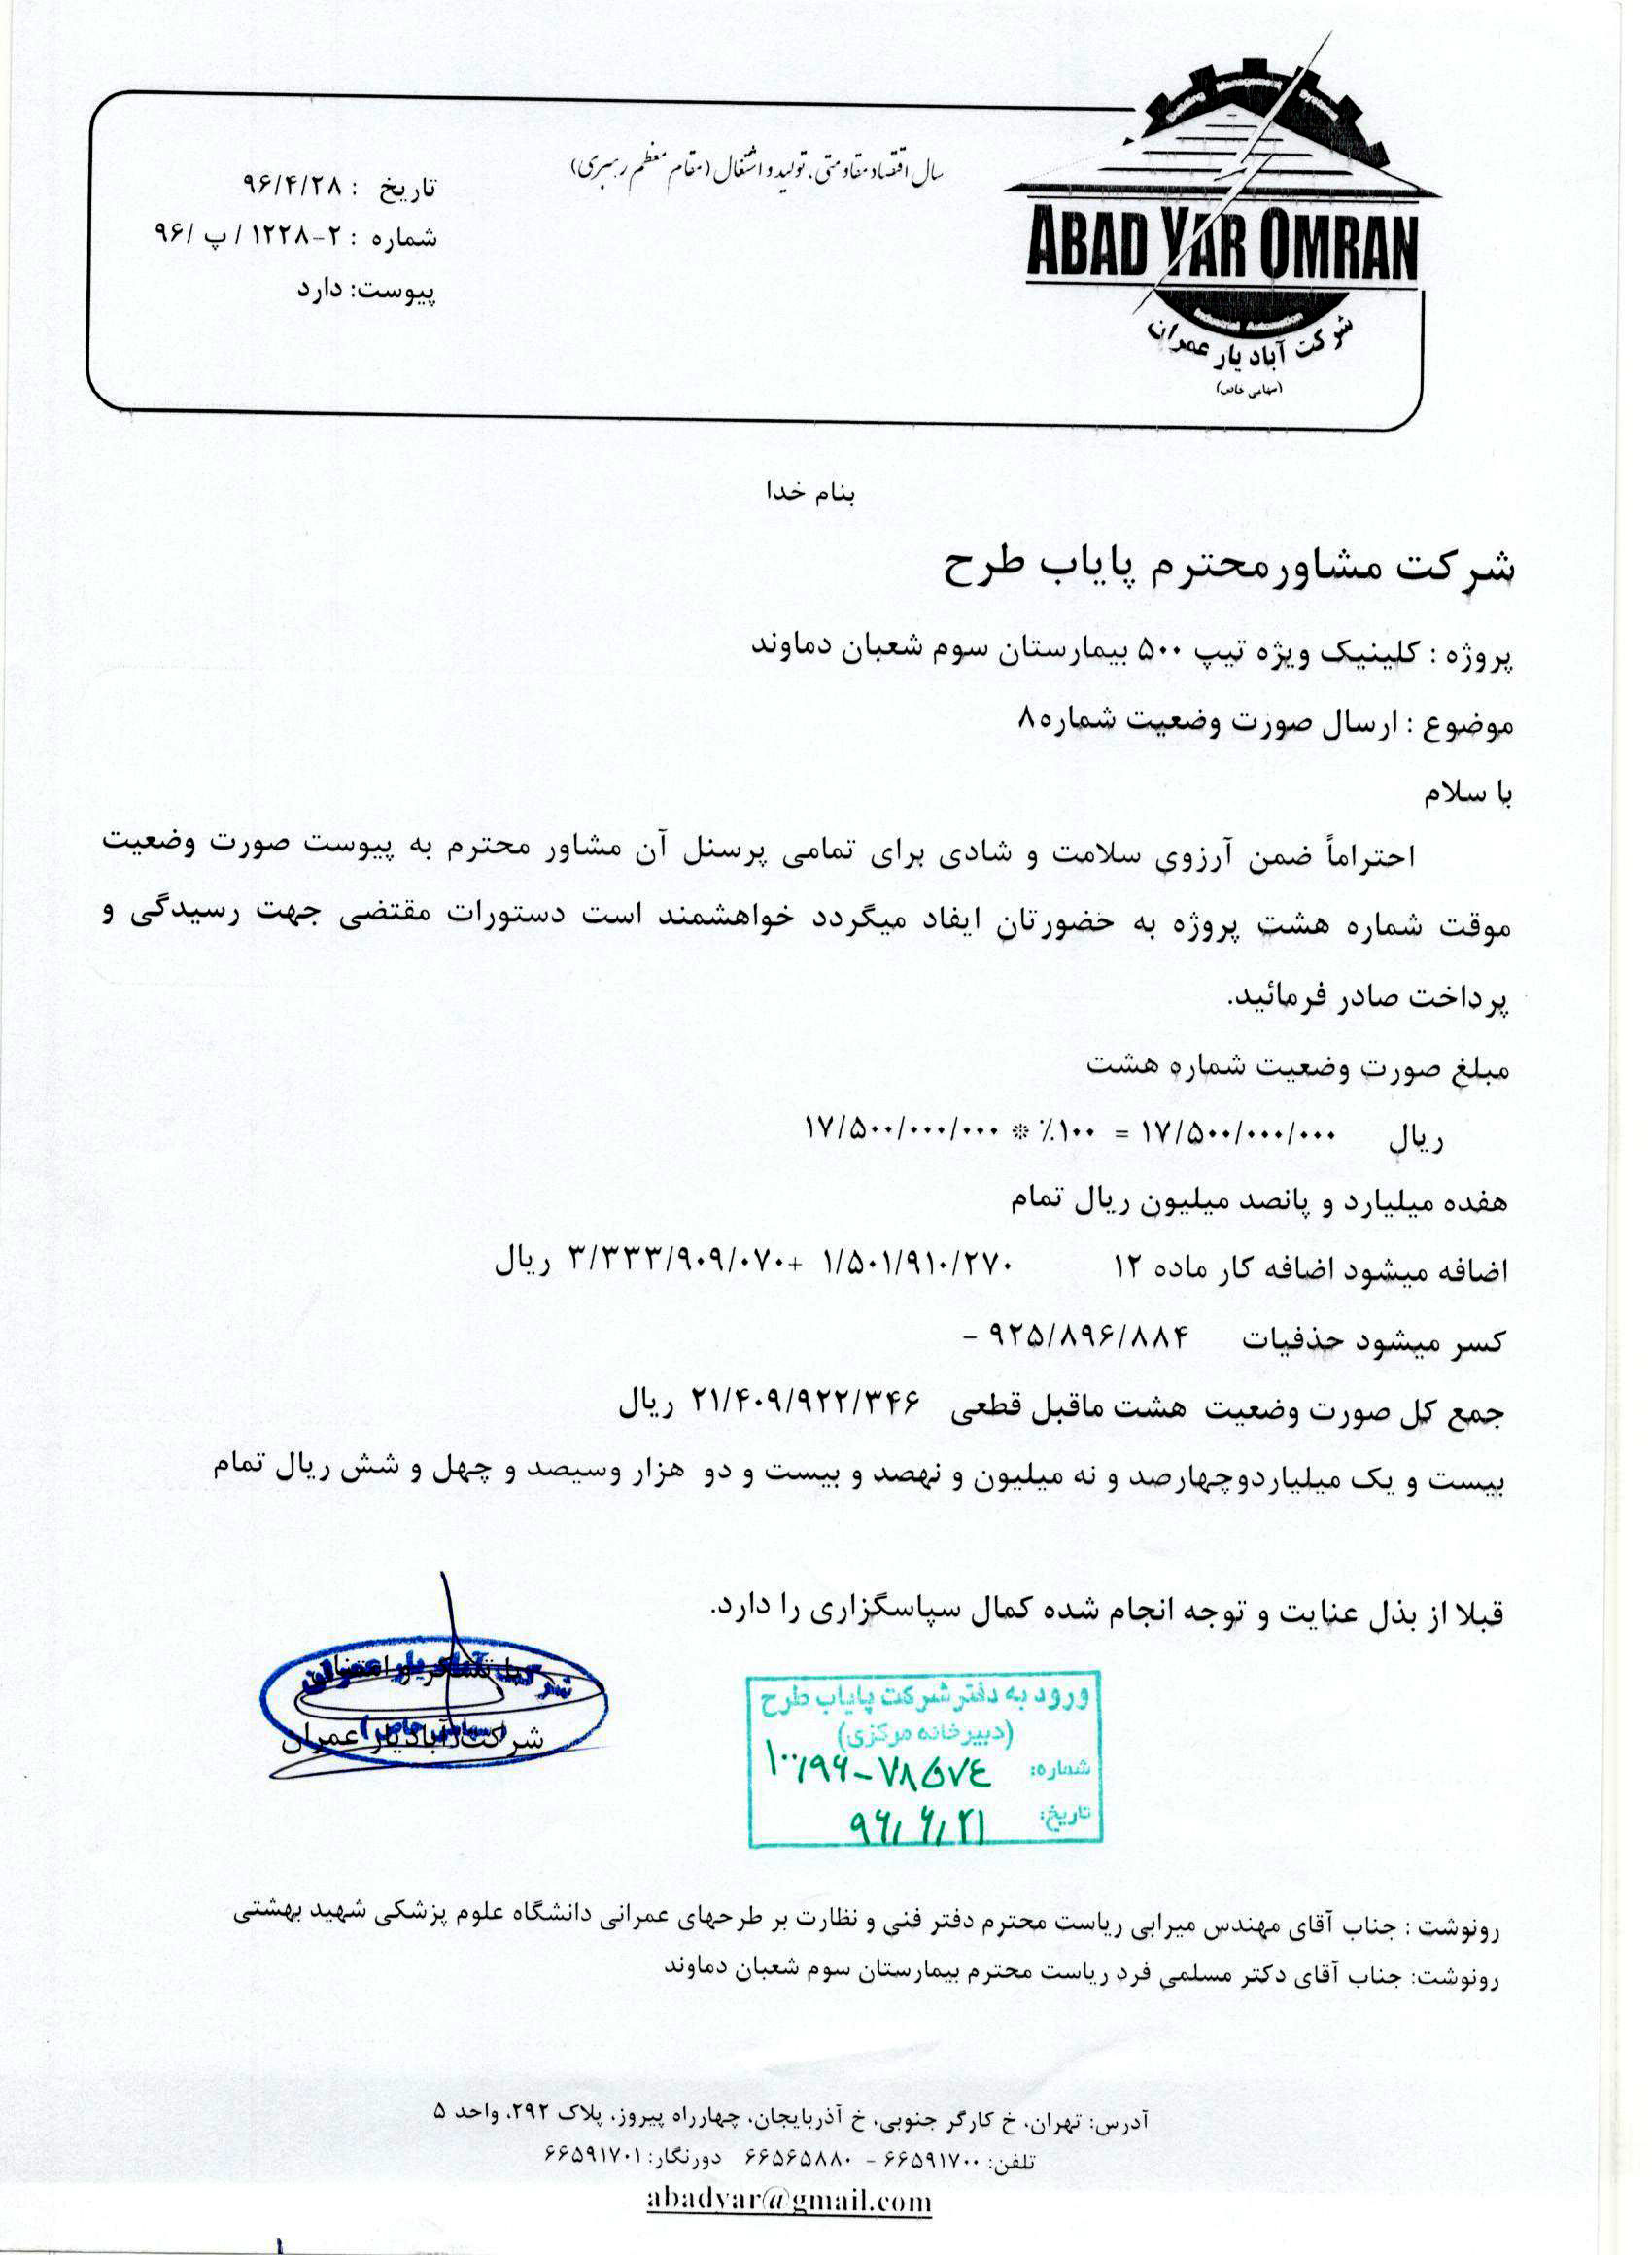 Building Management System
ABAD YAR OMRAN
Industrial Automation
شرکت آباد یار عمران
(سهامی خاص)
سال اقتصاد مقاومتی، تولید و اشتغال (مقام معظم رهبری)
تاریخ : ۹۶/۴/۲۸
شماره : ۲-۱۲۲۸ / پ /۹۶
پیوست: دارد
بنام خدا
شرکت مشاورمحترم پایاب طرح
پروژه : کلینیک ویژه تیپ ۵۰۰ بیمارستان سوم شعبان دماوند
موضوع : ارسال صورت وضعیت شماره۸
با سلام
احتراماً ضمن آرزوی سلامت و شادی برای تمامی پرسنل آن مشاور محترم به پیوست صورت وضعیت
موقت شماره هشت پروژه به حضورتان ایفاد میگردد خواهشمند است دستورات مقتضی جهت رسیدگی و
پرداخت صادر فرمائید.
مبلغ صورت وضعیت شماره هشت
۱۷/۵۰۰/۰۰۰/۰۰۰ * ٪۱۰۰ = ۱۷/۵۰۰/۰۰۰/۰۰۰ ریال
هفده میلیارد و پانصد میلیون ریال تمام
اضافه میشود اضافه کار ماده ۱۲ ۱/۵۰۱/۹۱۰/۲۷۰ +۳/۳۳۳/۹۰۹/۰۷۰ ریال
کسر میشود حذفیات ۹۲۵/۸۹۶/۸۸۴ –
جمع کل صورت وضعیت هشت ماقبل قطعی ۲۱/۴۰۹/۹۲۲/۳۴۶ ریال
بیست و یک میلیاردوچهارصد و نه میلیون و نهصد و بیست و دو هزار وسیصد و چهل و شش ریال تمام
قبلا از بذل عنایت و توجه انجام شده کمال سپاسگزاری را دارد.
با تشکر و امتنان
شرکت آباد یار عمران
شرکت آباد یار عمران
(سهامی خاص)
ورود به دفتر شرکت پایاب طرح
(دبیرخانه مرکزی)
شماره: ۱۰۰/۹۶-۷۸۵۷۴
تاریخ: ۹۶/۶/۲۱
رونوشت : جناب آقای مهندس میرابی ریاست محترم دفتر فنی و نظارت بر طرحهای عمرانی دانشگاه علوم پزشکی شهید بهشتی
رونوشت: جناب آقای دکتر مسلمی فرد ریاست محترم بیمارستان سوم شعبان دماوند
آدرس: تهران، خ کارگر جنوبی، خ آذربایجان، چهارراه پیروز، پلاک ۲۹۲، واحد ۵
تلفن: ۶۶۵۹۱۷۰۰ - ۶۶۵۶۵۸۸۰ دورنگار: ۶۶۵۹۱۷۰۱
abadyar@gmail.com